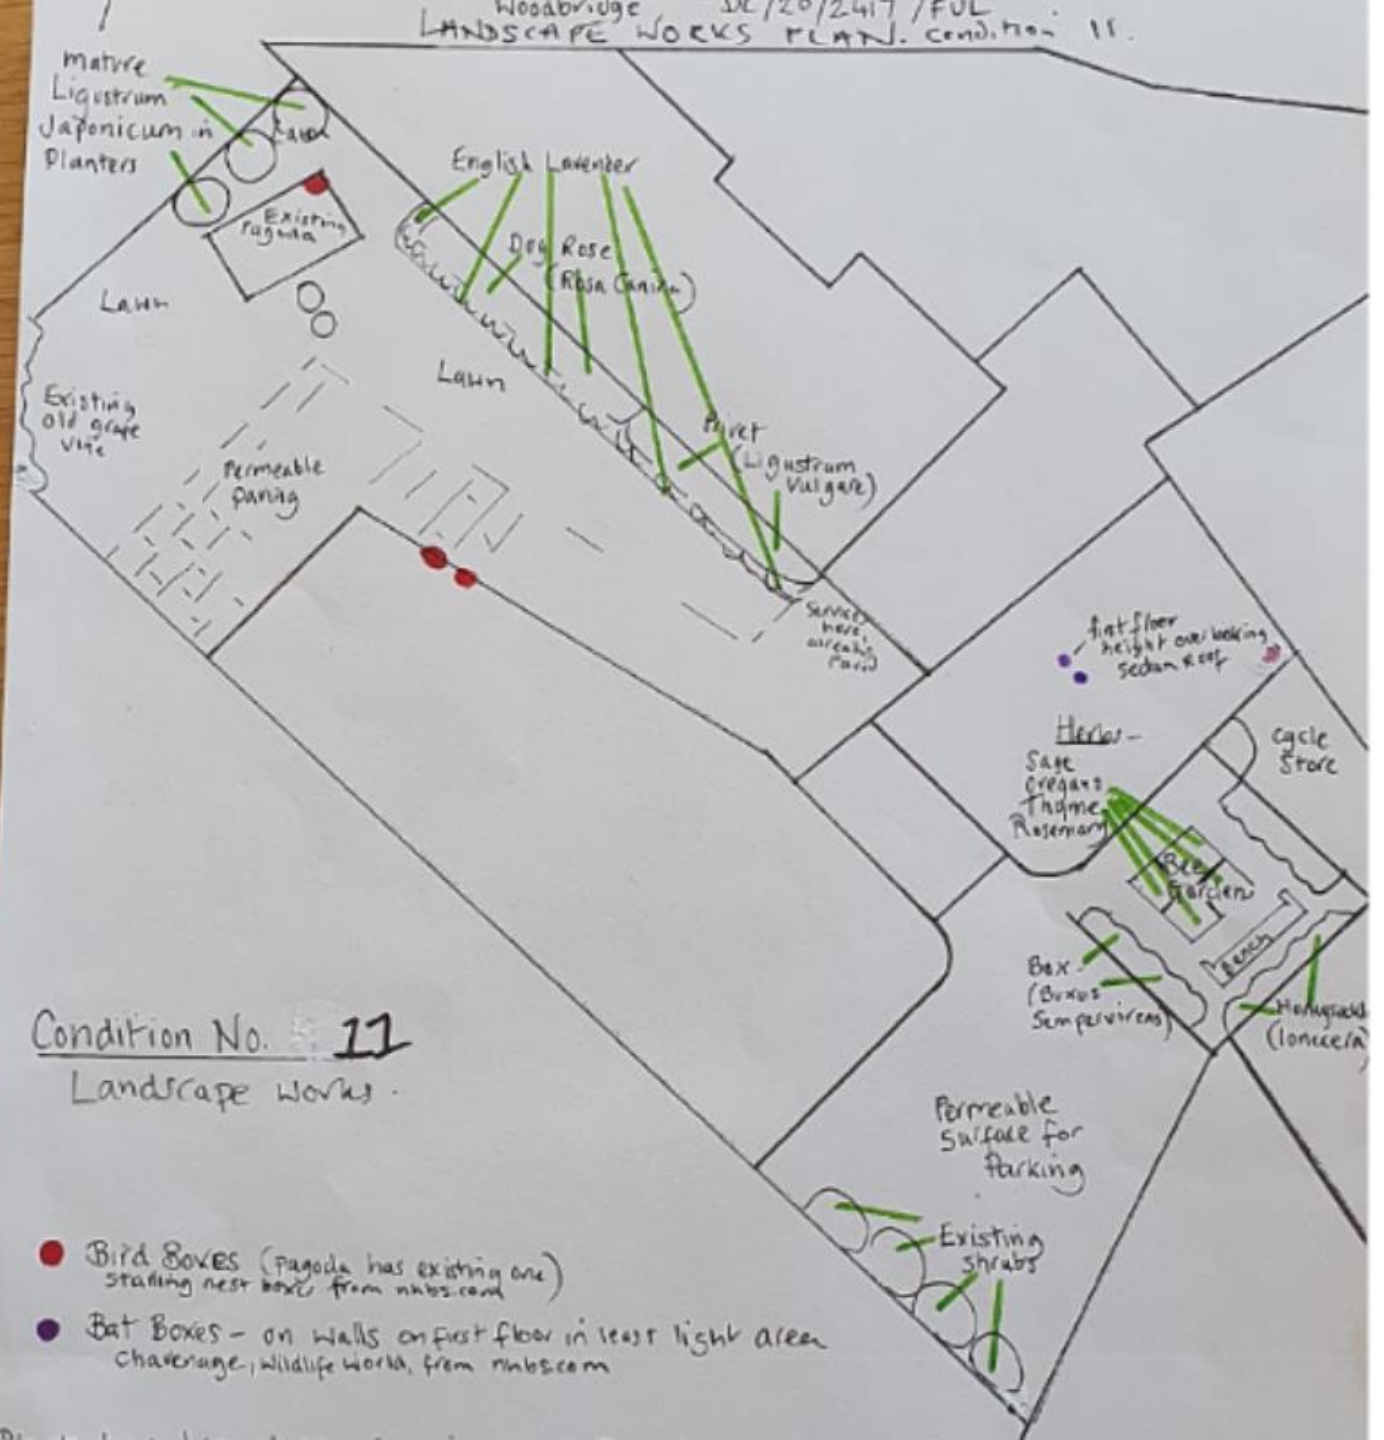 Woodbridge DC/20/2417/FUL
LANDSCAPE WORKS PLAN. Condition 11.
Mature
Ligustrum
Japonicum in
Planters
Lawn
Existing
Pagoda
English Lavender
Dog Rose
(Rosa Canina)
Lawn
Lawn
Existing
old grape
vine
Permeable
Paving
Privet
(Ligustrum
Vulgare)
Services
here,
already
Paved
first floor
height overlooking
sedum roof
Herbs -
Sage
oregano
Thyme
Rosemary
Cycle
Store
Bee
Garden
Bench
Box
(Buxus
Sempervirens)
Honeysuckle
(lonicera)
Condition No. 11
Landscape works.
Permeable
Surface for
Parking
Existing
shrubs
Bird Boxes (pagoda has existing one)
Starling nest boxes from nhbs.com
Bat Boxes - on walls on first floor in least light area
Chavenage, Wildlife World, from nhbs.com